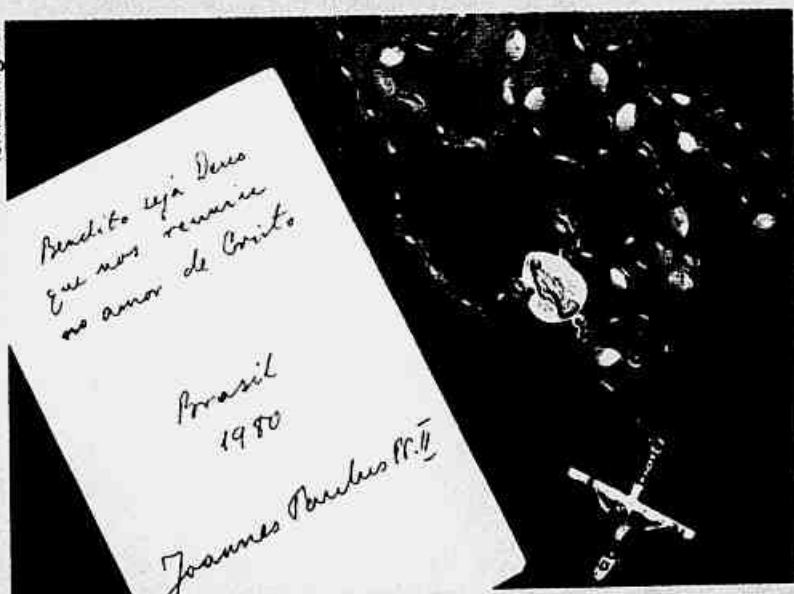 Bendito seja Deus
que nos reuniu
no amor de Cristo
Brasil
1980
Joannes Paulus PP. II